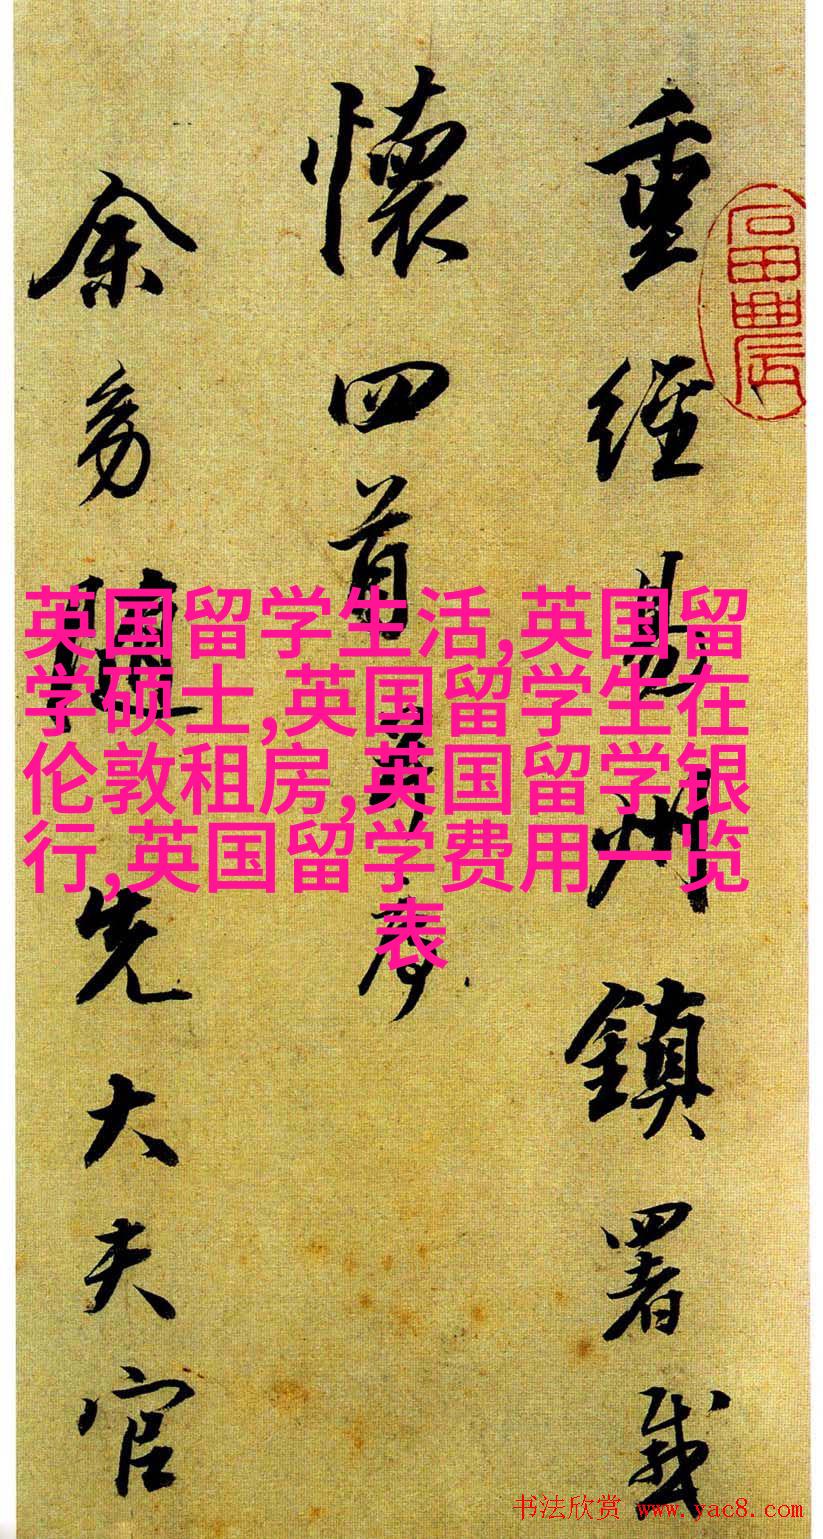 重經州鎮署感
懷四首并序
余幼隨先大夫官
英国留学生活,英国留
学硕士,英国留学生在
伦敦租房,英国留学银
行,英国留学费用一览
表
书法欣赏 www.yac8.com